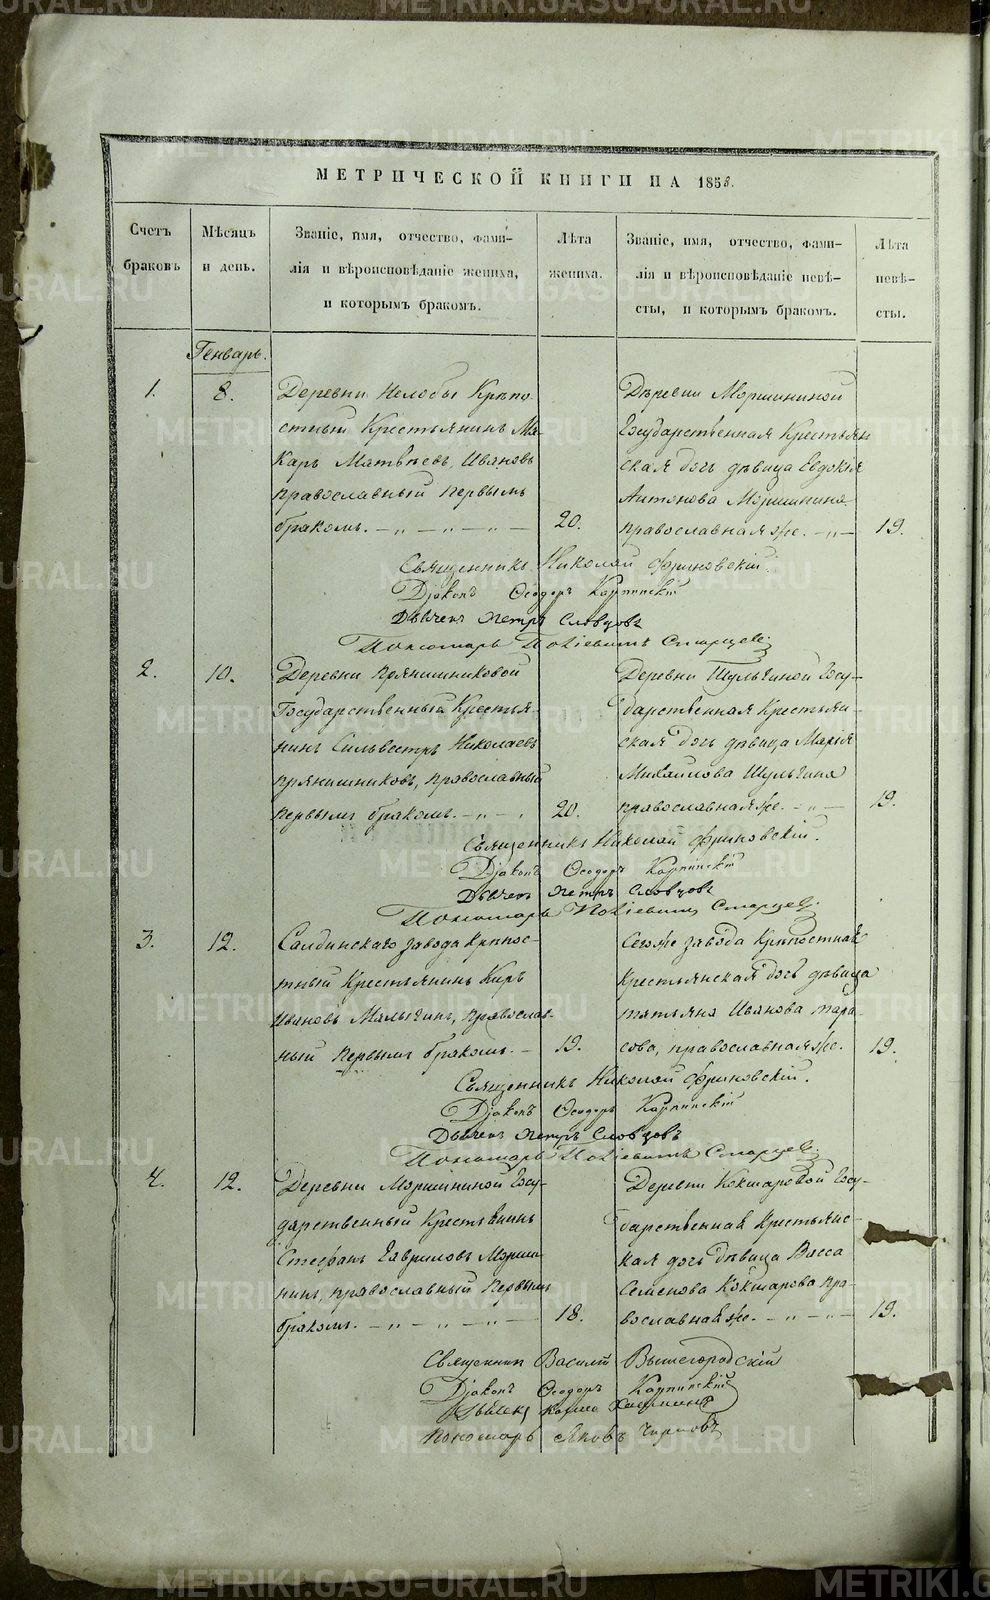 МЕТРИЧЕСКОЙ КНИГИ НА 1853.
Счетъ браковъ
Мѣсяцъ и день.
Званіе, имя, отчество, фами-
лія и вѣроисповѣданіе жениха,
и которымъ бракомъ.
Лѣта жениха.
Званіе, имя, отчество, фами-
лія и вѣроисповѣданіе невѣ-
сты, и которымъ бракомъ.
Лѣта невѣ-
сты.
Генварь.
1.
8.
Деревни Нелобы Крѣпо
стный Крестьянинъ Ма-
каръ Матвѣевъ Ивановъ
православный первымъ
бракомъ. — „ — „ — „ —
20.
Деревни Моршининой
Государственная Крестьян
ская дочь дѣвица Евдокія
Антонова Моршинина
православная же. — „ —
19.
Священникъ Николай Фриновскій.
Діаконъ Ѳеодоръ Карпинскій
Дьячекъ Петръ Словцовъ
Пономарь Старцевъ
2.
10.
Деревни Прянишниковой
Государственный Крестья-
нинъ Сильвестръ Николаевъ
Прянишниковъ, православный
первымъ бракомъ. — „ — „
20.
Деревни Шульгиной Госу-
дарственная Крестьян-
ская дочь дѣвица Марія
Михайлова Шульгина
православная же. — „ —
19.
Священникъ Николай Фриновскій.
Діаконъ Ѳеодоръ Карпинскій
Дьячекъ Петръ Словцовъ
Пономарь Старцевъ
3.
12.
Салдинскаго завода Крѣпос-
тный Крестьянинъ Киръ
Ивановъ Малыгинъ, Православ-
ный первымъ бракомъ. —
19.
Сегоже завода Крѣпостная
Крестьянская дочь дѣвица
Татьяна Иванова Тара
сова, православная же.
19.
Священникъ Николай Фриновскій.
Діаконъ Ѳеодоръ Карпинскій
Дьячекъ Петръ Словцовъ
Пономарь Старцевъ
4.
12.
Деревни Моршининой Госу-
дарственный Крестьянинъ
Стефанъ Гавриловъ Морши
нинъ, православный первымъ
бракомъ. — „ — „ — „ —
18.
Деревни Кокшаровой Госу-
дарственная Крестьянс-
кая дочь дѣвица Васса
Семенова Кокшарова пра-
вославная же. — „ — „ —
19.
Священникъ Василій Вышегородскій
Діаконъ Ѳеодоръ Карпинскій
Дьячекъ Козма
Пономарь Яковъ
METRIKI.GASO-URAL.RU